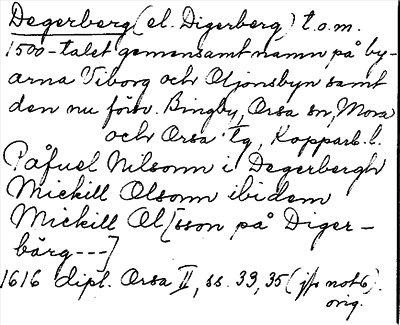 Degerberg (el. Digerberg) t.o.m.
1500-talet gemensamt namn på by-
arna Viborg och Oljonsbyn samt
den nu försv. Bingby, Orsa sn, Mora
och Orsa tg, Kopparb. l.
Påfuel Nilsonn i Degerbergh
Mickill Olsonn ibidem
Mickill Ol[sson på Diger-
bärg---]
1616 dipl. Orsa II, ss. 33, 35 (jfr not 6).
orig.